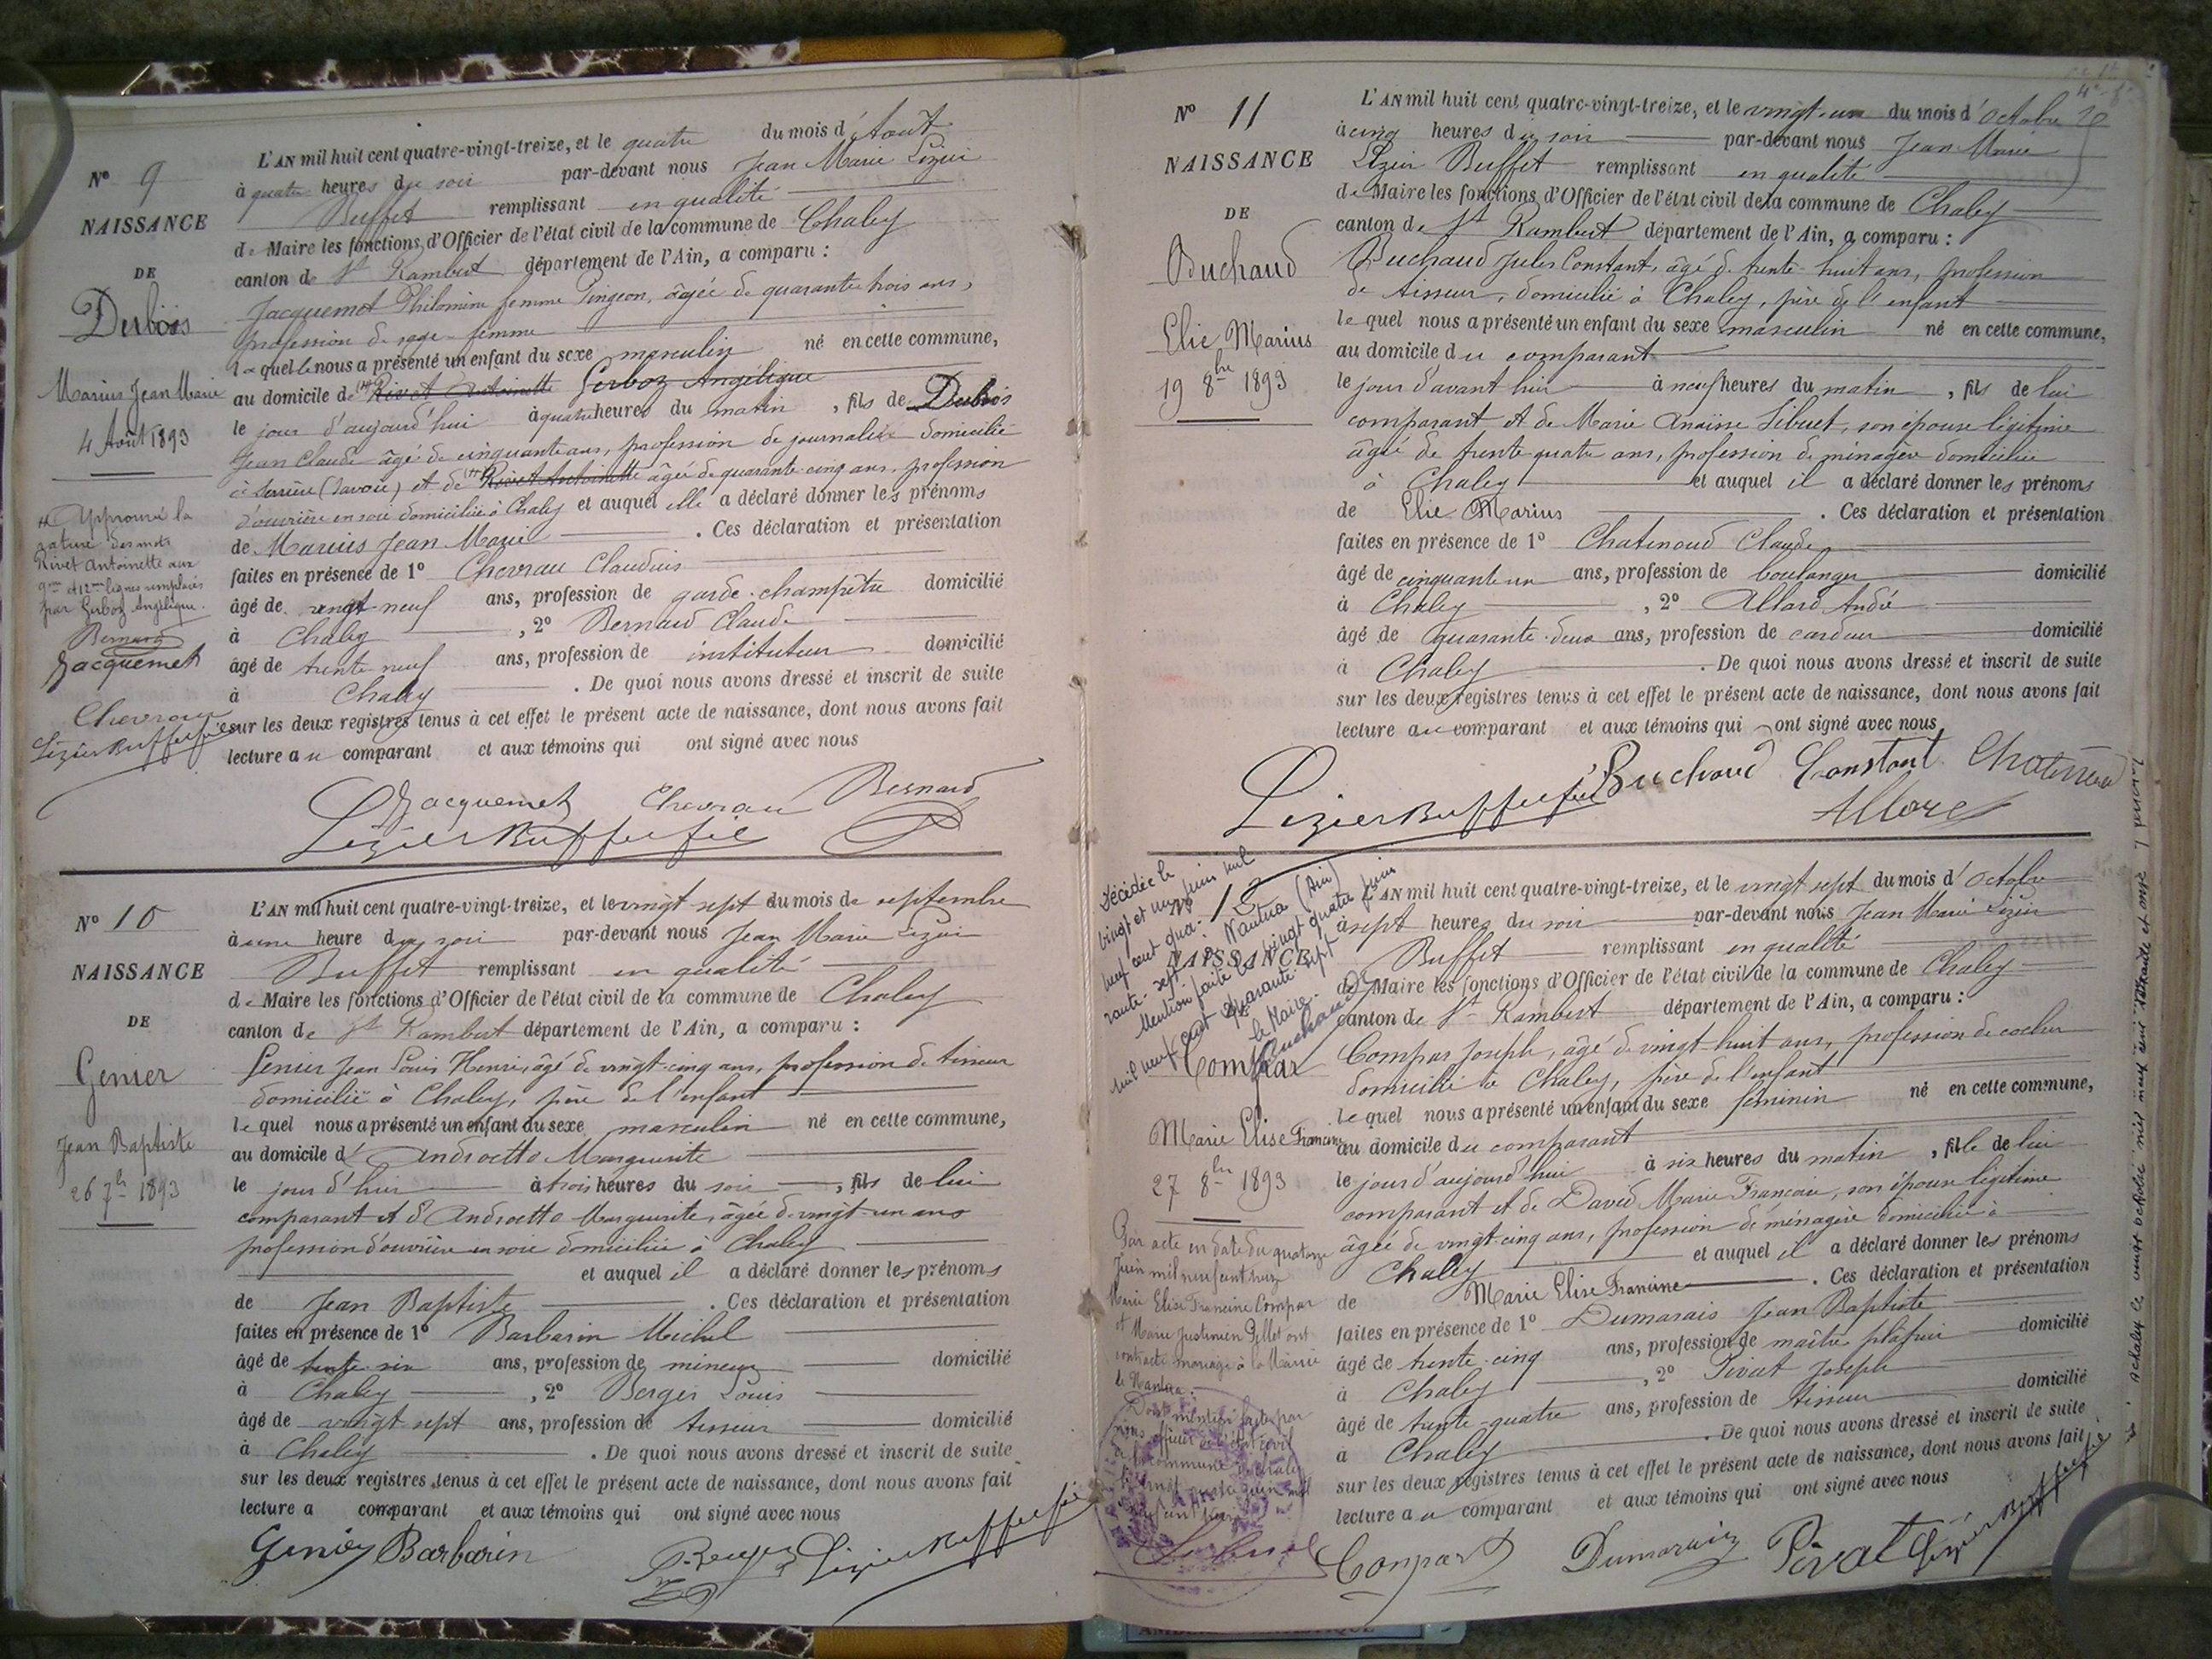 N° 9
NAISSANCE
DE
Dubois
Marius Jean Marie
4 Août 1893
Approuvé la
rature des mots
Rivet Antoinette aux
9me et 12me lignes remplacés
par Gerboz Angélique.
Bernard
Jacquemet
Chevrau
Lizier Buffet fils
L'AN mil huit cent quatre-vingt-treize, et le quatre du mois d'Août
à quatre heures du soir par-devant nous Jean Marie Lizier
Buffet remplissant en qualité
de Maire les fonctions d'Officier de l'état civil de la commune de Chaley
canton de St Rambert département de l'Ain, a comparu :
Jacquemet Philomine femme Pingeon, âgée de quarante trois ans,
profession de sage-femme
laquelle nous a présenté un enfant du sexe masculin né en cette commune,
au domicile de Rivet Antoinette Gerboz Angélique
le jour d'aujourd'hui à quatre heures du matin, fils de Dubois
Jean Claude âgé de cinquante ans, profession de journalier domicilié
à Serrière (Savoie) et de Rivet Antoinette âgée de quarante cinq ans, profession
d'ouvrière en soie domiciliée à Chaley et auquel elle a déclaré donner les prénoms
de Marius Jean Marie . Ces déclaration et présentation
faites en présence de 1° Chevrau Claudius
âgé de vingt-neuf ans, profession de garde-champêtre domicilié
à Chaley , 2° Bernard Claude
âgé de trente neuf ans, profession de instituteur domicilié
à Chaley . De quoi nous avons dressé et inscrit de suite
sur les deux registres tenus à cet effet le présent acte de naissance, dont nous avons fait
lecture au comparant et aux témoins qui ont signé avec nous
Jacquemet Chevrau Bernard
Lizier Buffet fils
N° 10
NAISSANCE
DE
Genier
Jean Baptiste
26 7h 1893
L'AN mil huit cent quatre-vingt-treize, et le vingt sept du mois de septembre
à une heure du soir par-devant nous Jean Marie Lizier
Buffet remplissant en qualité
de Maire les fonctions d'Officier de l'état civil de la commune de Chaley
canton de St Rambert département de l'Ain, a comparu :
Genier Jean Louis Henri, âgé de vingt-cinq ans, profession de tisseur
domicilié à Chaley, père de l'enfant
lequel nous a présenté un enfant du sexe masculin né en cette commune,
au domicile d'Androetto Marguerite
le jour d'hier à trois heures du soir, fils de lui
comparant et d'Androetto Marguerite, âgée de vingt-un ans
profession d'ouvrière en soie domiciliée à Chaley
et auquel il a déclaré donner les prénoms
de Jean Baptiste . Ces déclaration et présentation
faites en présence de 1° Barbarin Michel
âgé de trente six ans, profession de mineur domicilié
à Chaley , 2° Berger Louis
âgé de vingt-sept ans, profession de tisseur domicilié
à Chaley . De quoi nous avons dressé et inscrit de suite
sur les deux registres tenus à cet effet le présent acte de naissance, dont nous avons fait
lecture a comparant et aux témoins qui ont signé avec nous
Genier Barbarin Berger Lizier Buffet fils
N° 11
NAISSANCE
DE
Buchaud
Elie Marius
19 8bre 1893
L'AN mil huit cent quatre-vingt-treize, et le vingt-un du mois d'octobre
à cinq heures du soir par-devant nous Jean Marie
Lizier Buffet remplissant en qualité
de Maire les fonctions d'Officier de l'état civil de la commune de Chaley
canton de St Rambert département de l'Ain, a comparu :
Buchaud Jules Constant, âgé de trente-huit ans, profession
de tisseur, domicilié à Chaley, père de l'enfant
lequel nous a présenté un enfant du sexe masculin né en cette commune,
au domicile du comparant
le jour d'avant hier à neuf heures du matin, fils de lui
comparant et de Marie Anaïsse Sibuet, son épouse légitime
âgée de trente-quatre ans, profession de ménagère domiciliée
à Chaley et auquel il a déclaré donner les prénoms
de Elie Marius . Ces déclaration et présentation
faites en présence de 1° Chatenoud Claude
âgé de cinquante un ans, profession de boulanger domicilié
à Chaley , 2° Allard André
âgé de quarante-deux ans, profession de cardeur domicilié
à Chaley . De quoi nous avons dressé et inscrit de suite
sur les deux registres tenus à cet effet le présent acte de naissance, dont nous avons fait
lecture au comparant et aux témoins qui ont signé avec nous
Lizier Buffet fils Buchaud Constant Chatenoud
Allard
Décédée le
vingt et un juin mil
neuf cent qua-
rante-sept à Nantua (Ain)
Mention faite le vingt quatre juin
mil neuf cent quarante-sept
Le Maire.
N° 12
NAISSANCE
DE
Compar
Marie Elise Francine
27 8bre 1893
Par acte en date du quatorze
Juin mil neuf cent
Marie Elise Francine Compar
et Marie Justinien Gillet ont
contracté mariage à la Mairie
de Nantua.
Dont mention faite par
nous officier de l'état civil
de la commune de Chaley
L'AN mil huit cent quatre-vingt-treize, et le vingt sept du mois d'Octobre
à sept heures du soir par-devant nous Jean Marie Lizier
Buffet remplissant en qualité
de Maire les fonctions d'Officier de l'état civil de la commune de Chaley
canton de St Rambert département de l'Ain, a comparu :
Compar Joseph, âgé de vingt-huit ans, profession de cocher
domicilié à Chaley, père de l'enfant
lequel nous a présenté un enfant du sexe féminin né en cette commune,
au domicile du comparant
le jour d'aujourd'hui à six heures du matin, fille de lui
comparant et de David Marie Francoise, son épouse légitime
âgée de vingt-cinq ans, profession de ménagère domiciliée à
Chaley et auquel il a déclaré donner les prénoms
de Marie Elise Francine . Ces déclaration et présentation
faites en présence de 1° Dumarais Jean Baptiste
âgé de trente-cinq ans, profession de maître plâtrier domicilié
à Chaley , 2° Pivat Joseph
âgé de trente-quatre ans, profession de tisseur domicilié
à Chaley . De quoi nous avons dressé et inscrit de suite
sur les deux registres tenus à cet effet le présent acte de naissance, dont nous avons fait
lecture au comparant et aux témoins qui ont signé avec nous
Compar Dumarais Pivat Lizier Buffet fils